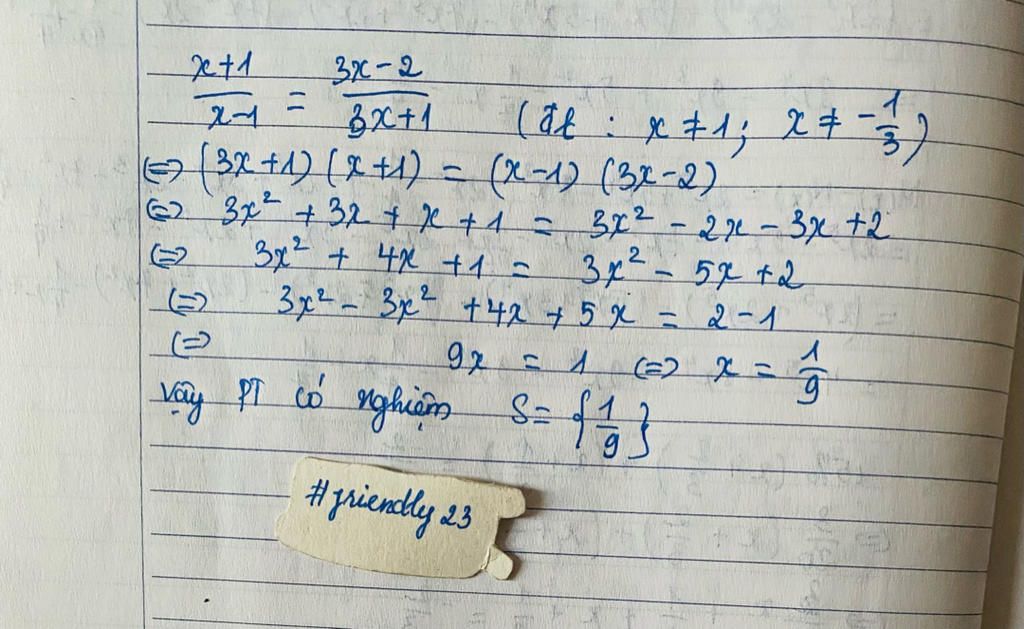 x+1/x-1 = 3x-2/3x+1 (đk : x ≠ 1; x ≠ -1/3)
(=) (3x+1) (x+1) = (x-1) (3x-2)
(=) 3x² + 3x + x + 1 = 3x² - 2x - 3x + 2
(=) 3x² + 4x + 1 = 3x² - 5x + 2
(=) 3x² - 3x² + 4x + 5x = 2 - 1
(=) 9x = 1 (=) x = 1/9
Vậy PT có nghiệm S = {1/9}
#friendly 23